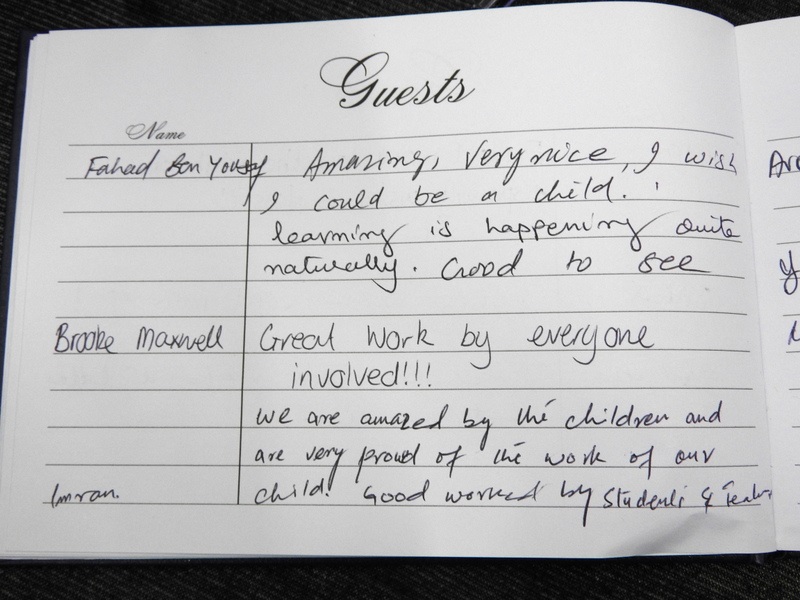 Guests
Name
Fahad Ben Yousf Amazing, Very nice, I wish
I could be a child.
learning is happening quite
naturally. Good to see
Brooke Maxwell Great Work by everyone
involved!!!
we are amazed by the children and
are very proud of the work of our
Imran. child! Good worked by Students &